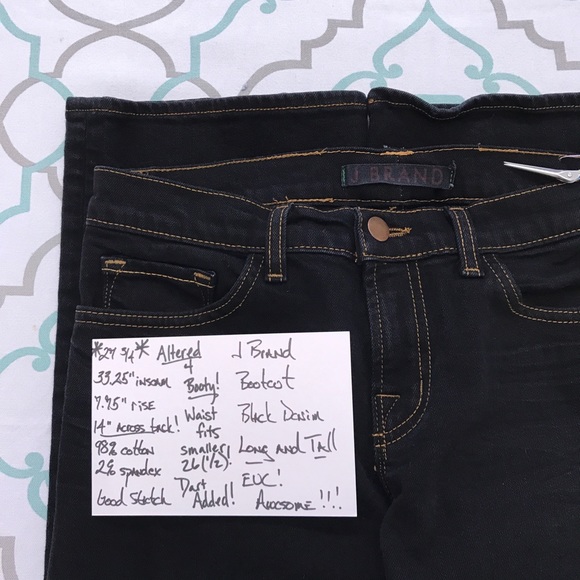 J BRAND
*27 3/4*
33.25" inseam
7.75" rise
14" Across back!
98% cotton
2% spandex
Good Stretch
Altered
+
Booty!
Waist
fits
smaller!
26 (1/2)!
Dart
Added!
J Brand
Bootcut
Black Denim
Long and Tall
EUC!
Awesome!!!